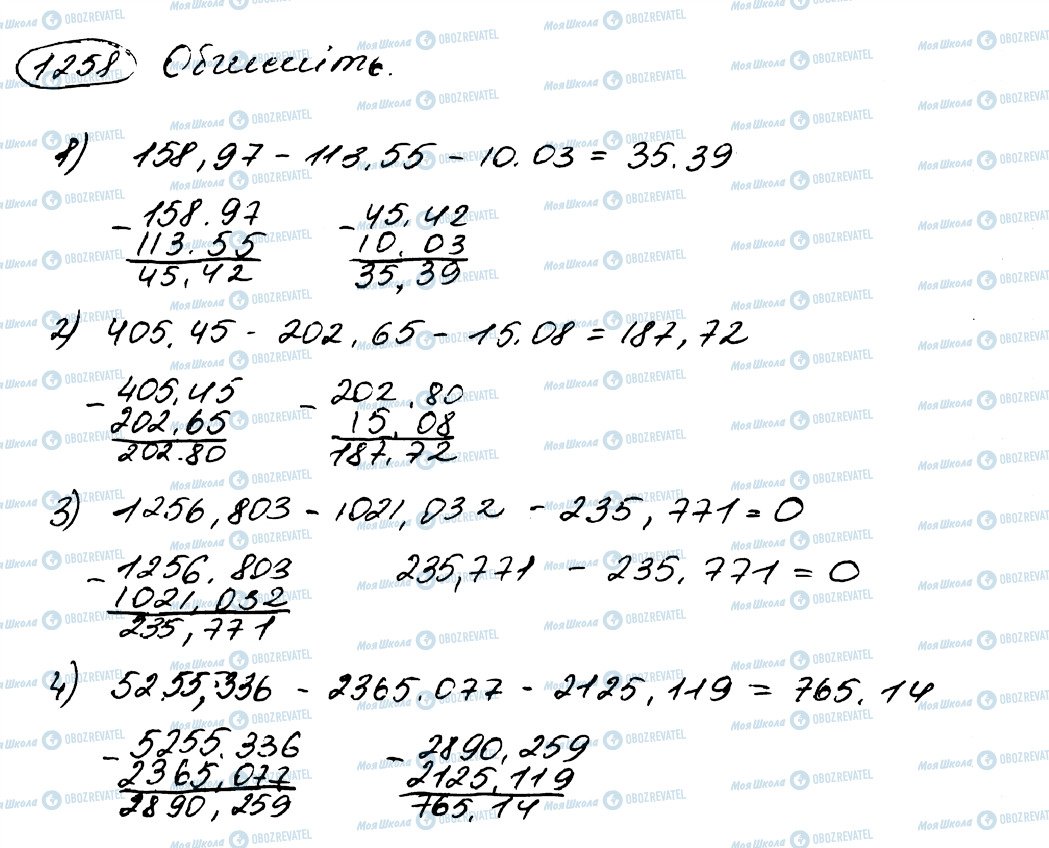 1258 Обчисліть.
1) 158,97 - 113.55 - 10.03 = 35.39
- 158.97 - 45.42
113.55 10.03
45,42 35,39
2) 405.45 - 202,65 - 15.08 = 187,72
- 405,45 - 202.80
202.65 15,08
202.80 187.72
3) 1256,803 - 1021,032 - 235,771 = 0
- 1256.803 235,771 - 235.771 = 0
1021,032
235,771
4) 5255,336 - 2365.077 - 2125,119 = 765.14
- 5255.336 - 2890,259
2365,077 2125,119
2890,259 765,14